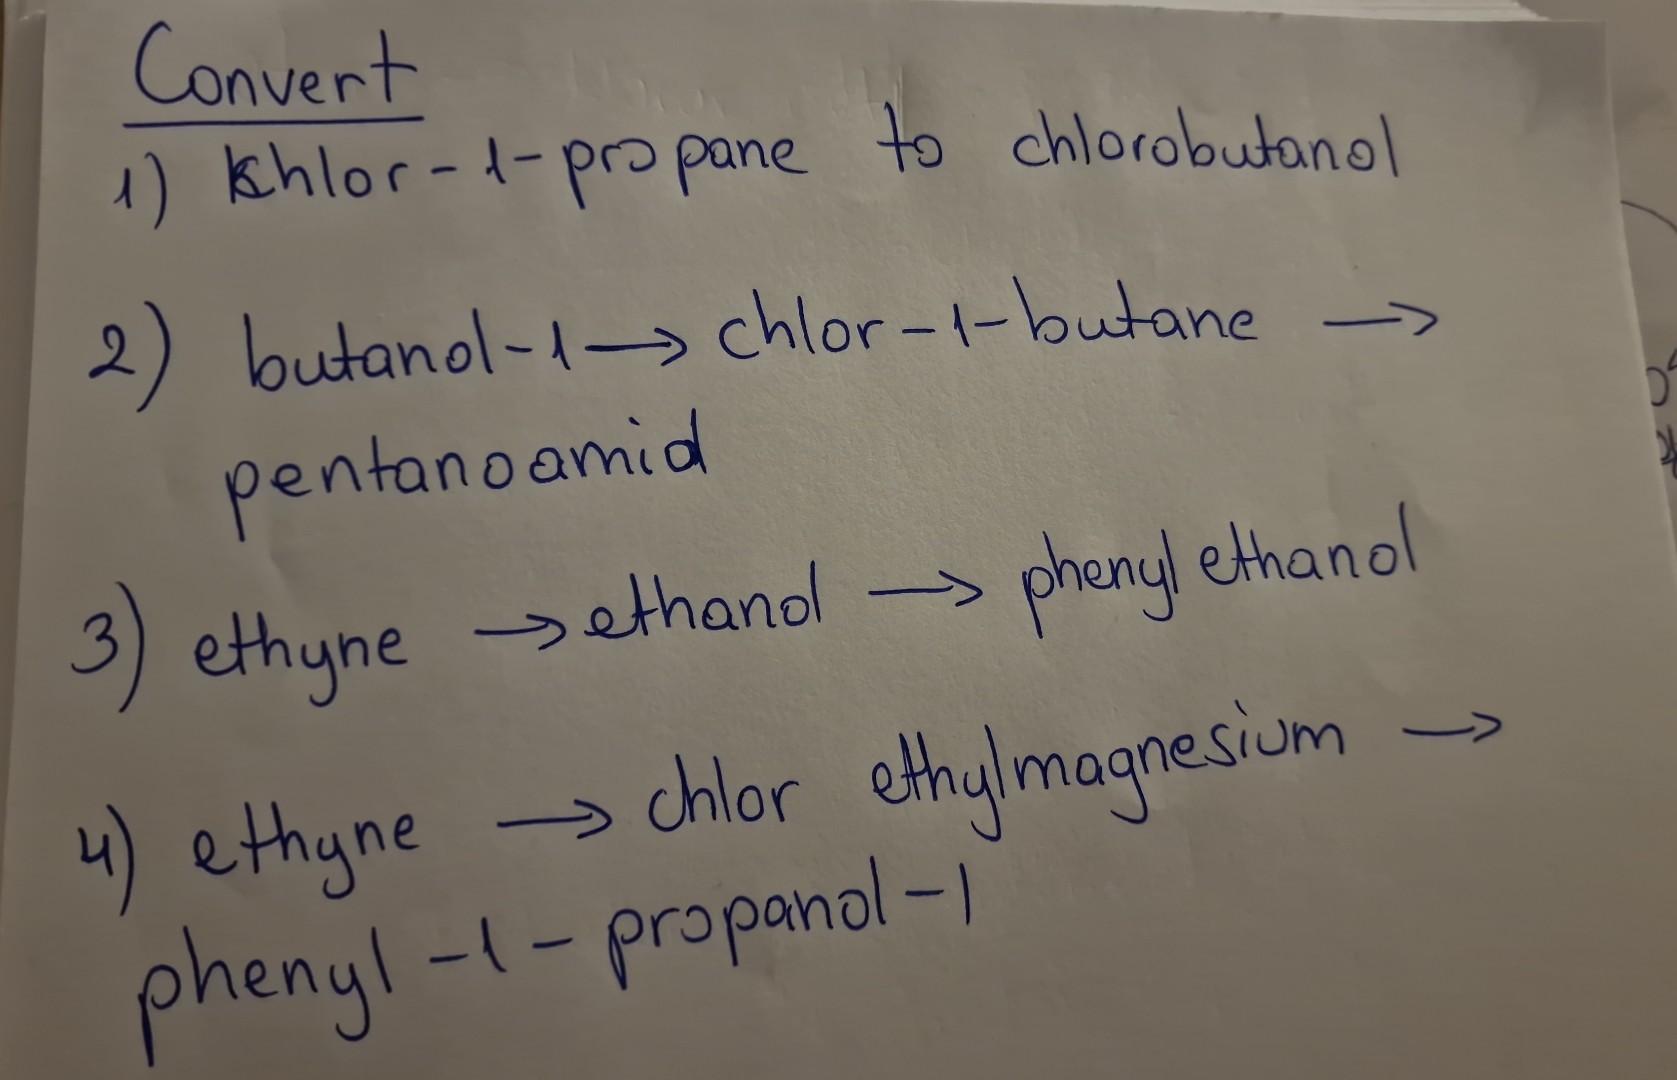 Convert
1) Khlor-1-propane to chlorobutanol
2) butanol-1 → chlor-1-butane →
pentanoamid
3) ethyne → ethanol → phenyl ethanol
4) ethyne → chlor ethylmagnesium →
phenyl-1-propanol-1